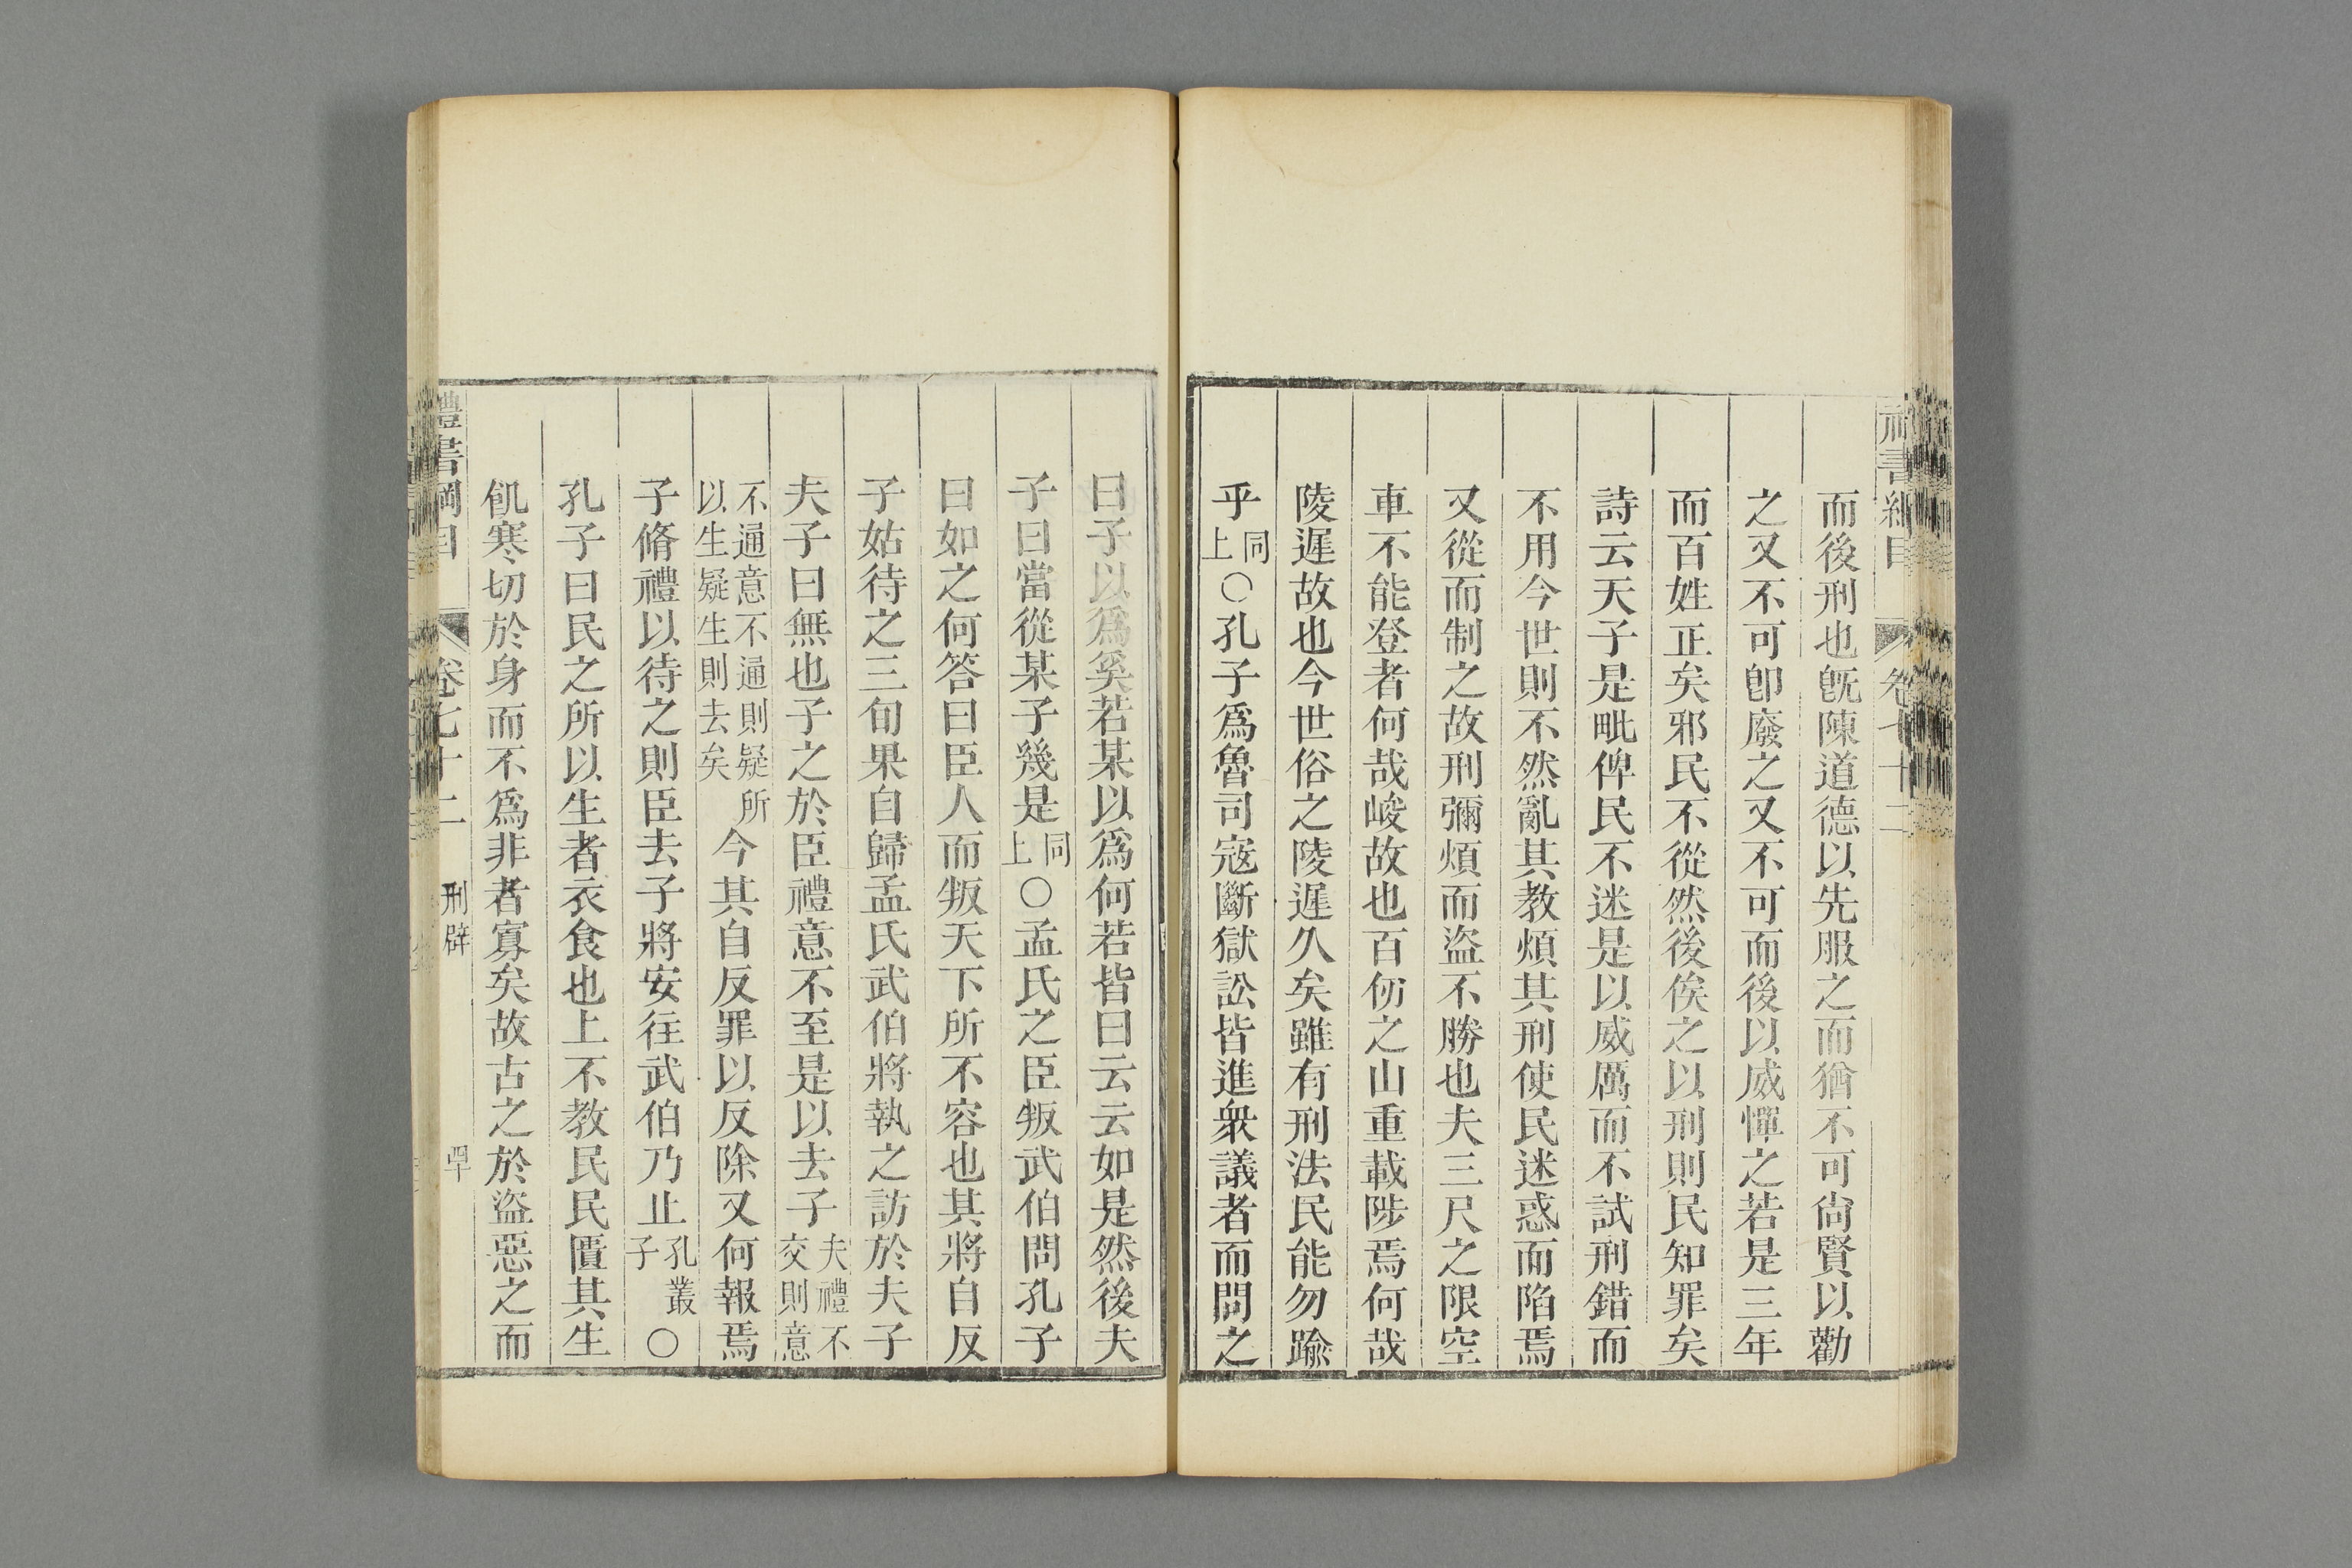 而後刑也旣陳道德以先服之而猶不可尙賢以勸
之又不可卽廢之又不可而後以威憚之若是三年
而百姓正矣邪民不從然後俟之以刑則民知罪矣
詩云天子是毗俾民不迷是以威厲而不試刑錯而
不用今世則不然亂其教煩其刑使民迷惑而陷焉
又從而制之故刑彌煩而盜不勝也夫三尺之限空
車不能登者何哉峻故也百仞之山重載陟焉何哉
陵遲故也今世俗之陵遲久矣雖有刑法民能勿踰
乎同上○孔子爲魯司寇斷獄訟皆進衆議者而問之
曰子以爲奚若某以爲何若皆曰云云如是然後夫
子曰當從某子幾是同上○孟氏之臣叛武伯問孔子
曰如之何答曰臣人而叛天下所不容也其將自反
子姑待之三旬果自歸孟氏武伯將執之訪於夫子
夫子曰無也子之於臣禮意不至是以去子夫禮不交則意
不通意不通則疑所以生疑生則去矣今其自反罪以反除又何報焉
子脩禮以待之則臣去子將安往武伯乃止孔叢子○
孔子曰民之所以生者衣食也上不教民民匱其生
飢寒切於身而不爲非者寡矣故古之於盜惡之而
禮書綱目 卷七十二 刑辟